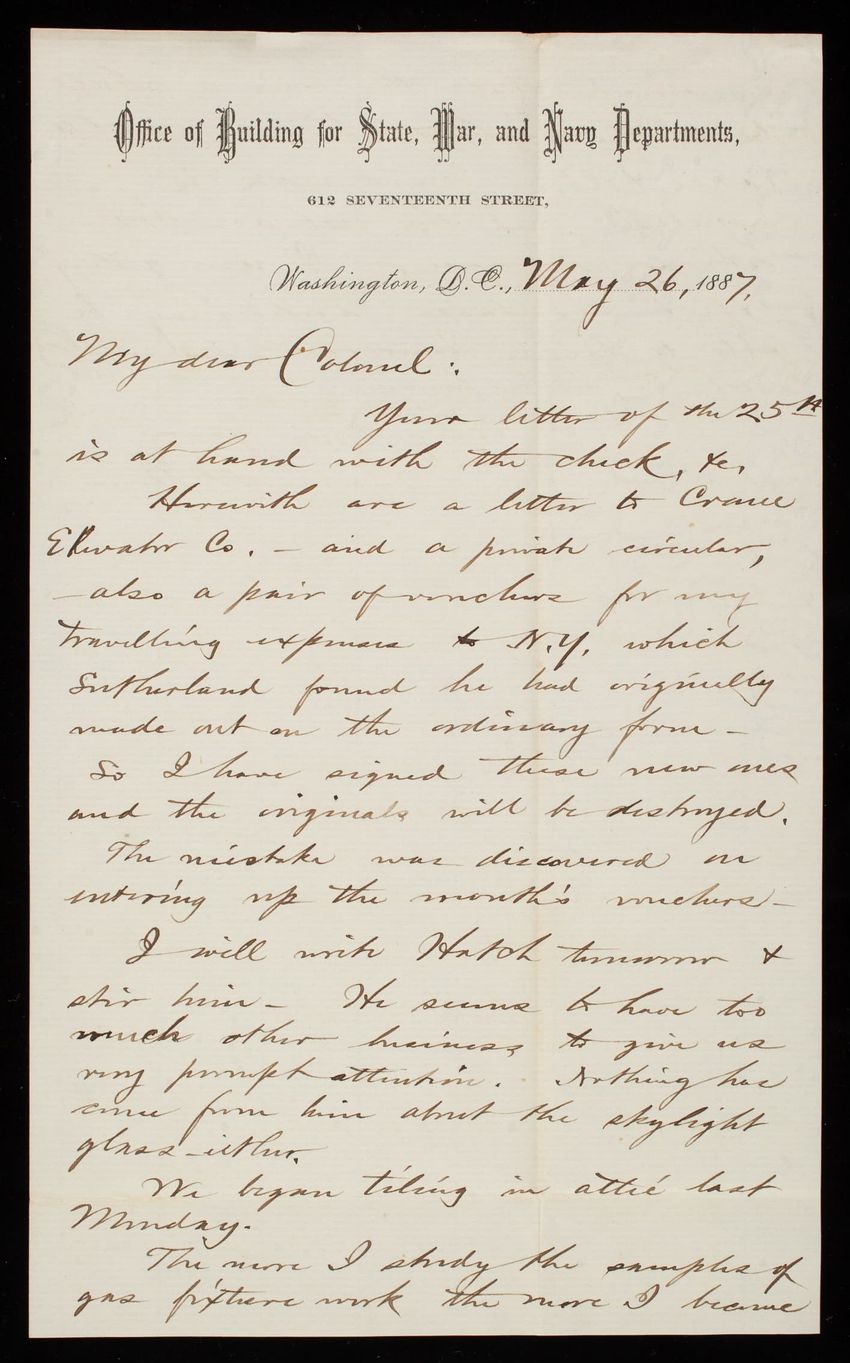 Office of Building for State, War, and Navy Departments,
612 SEVENTEENTH STREET,
Washington, D.C., May 26, 1887.
My dear Colonel:
Your letter of the 25th
is at hand with the check, &c.
Herewith are a letter to Crane
Elevator Co. – and a private circular,
– also a pair of vouchers for my
travelling expenses to N.Y. which
Sutherland found he had originally
made out on the ordinary form –
So I have signed these new ones
and the originals will be destroyed.
The mistake was discovered on
entering up the month's vouchers –
I will write Hatch tomorrow &
stir him – He seems to have too
much other business to give us
very prompt attention. Nothing has
come from him about the skylight
glass – either.
We began tiling in attic last
Monday.
The more I study the samples of
gas fixture work the more I become